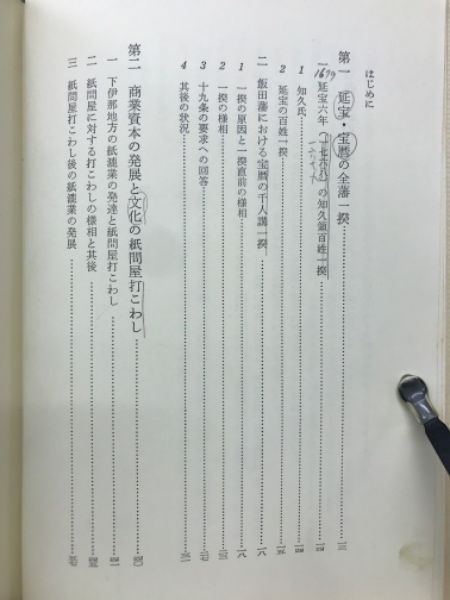 はじめに
第一 延宝・宝暦の全藩一揆……一三
1679
一 延宝六年(一六七八)の知久領百姓一揆……一四
1 知久氏……一四
2 延宝の百姓一揆……一五
二 飯田藩における宝暦の千人講一揆……一八
1 一揆の原因と一揆直前の様相……一八
2 一揆の様相
3 十九条の要求への回答
4 其後の状況
第二 商業資本の発展と文化の紙問屋打こわし
一 下伊那地方の紙漉業の発達と紙問屋打こわし
二 紙問屋に対する打こわしの様相と其後
三 紙問屋打こわし後の紙漉業の発展